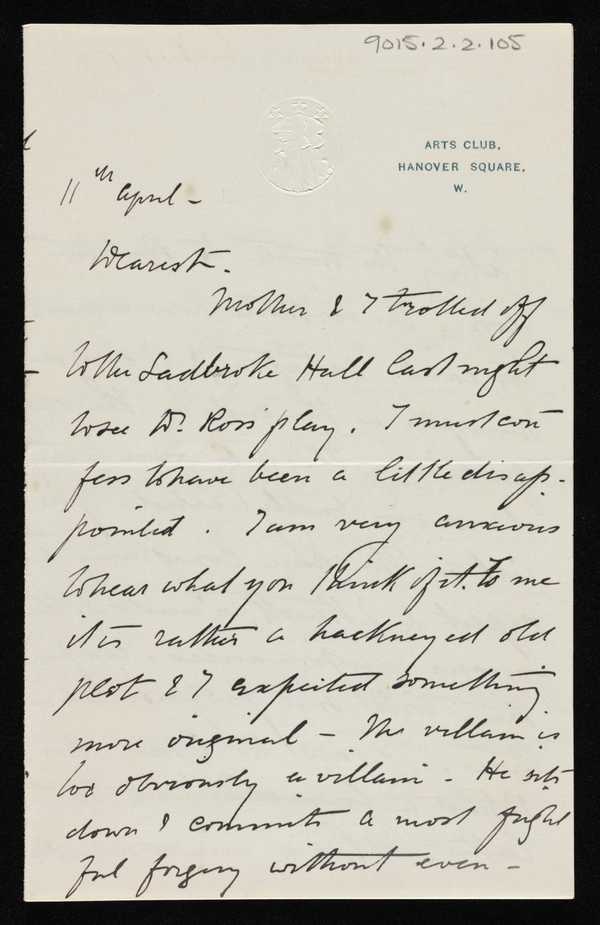 9015.2.2.105
ARTS CLUB,
HANOVER SQUARE,
W.
11th April –
Dearest.
Mother & I trotted off
to the Ladbroke Hall last night
to see Dr. Ross' play. I must con
fess to have been a little disap-
pointed. I am very anxious
to hear what you think of it. To me
it is rather a hackneyed old
plot & I expected something
more original – The villain is
too obviously a villain – He sits
down & commits a most fright
ful forgery without even –